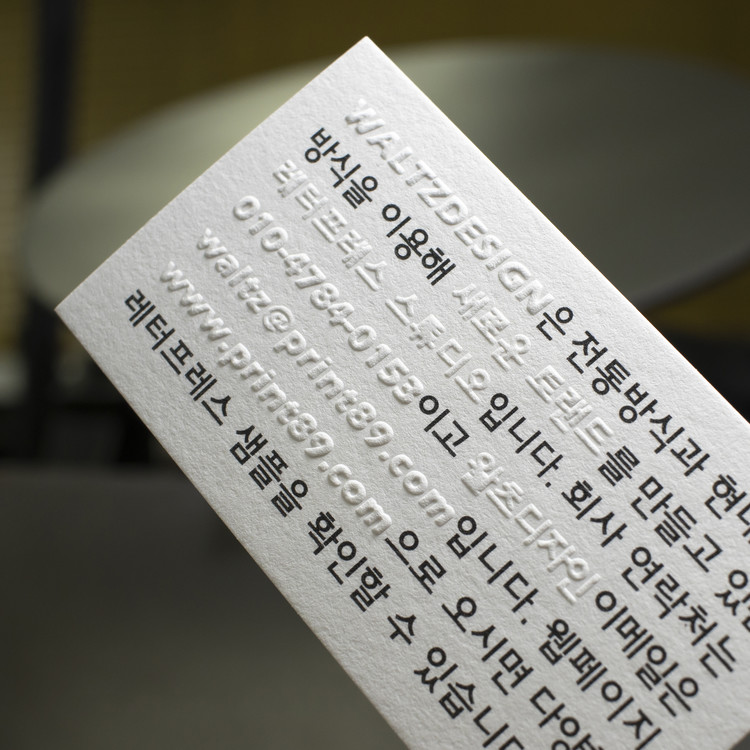 WALTZDESIGN은 전통방식과 현대
방식을 이용해 새로운 트랜드를 만들고 있
레터프레스 스튜디오입니다. 회사 연락처는
010-4784-0158이고 왈츠디자인 이메일은
waltz@print89.com입니다. 웹페이지
www.print89.com으로 오시면 다양
레터프레스 샘플을 확인할 수 있습니다